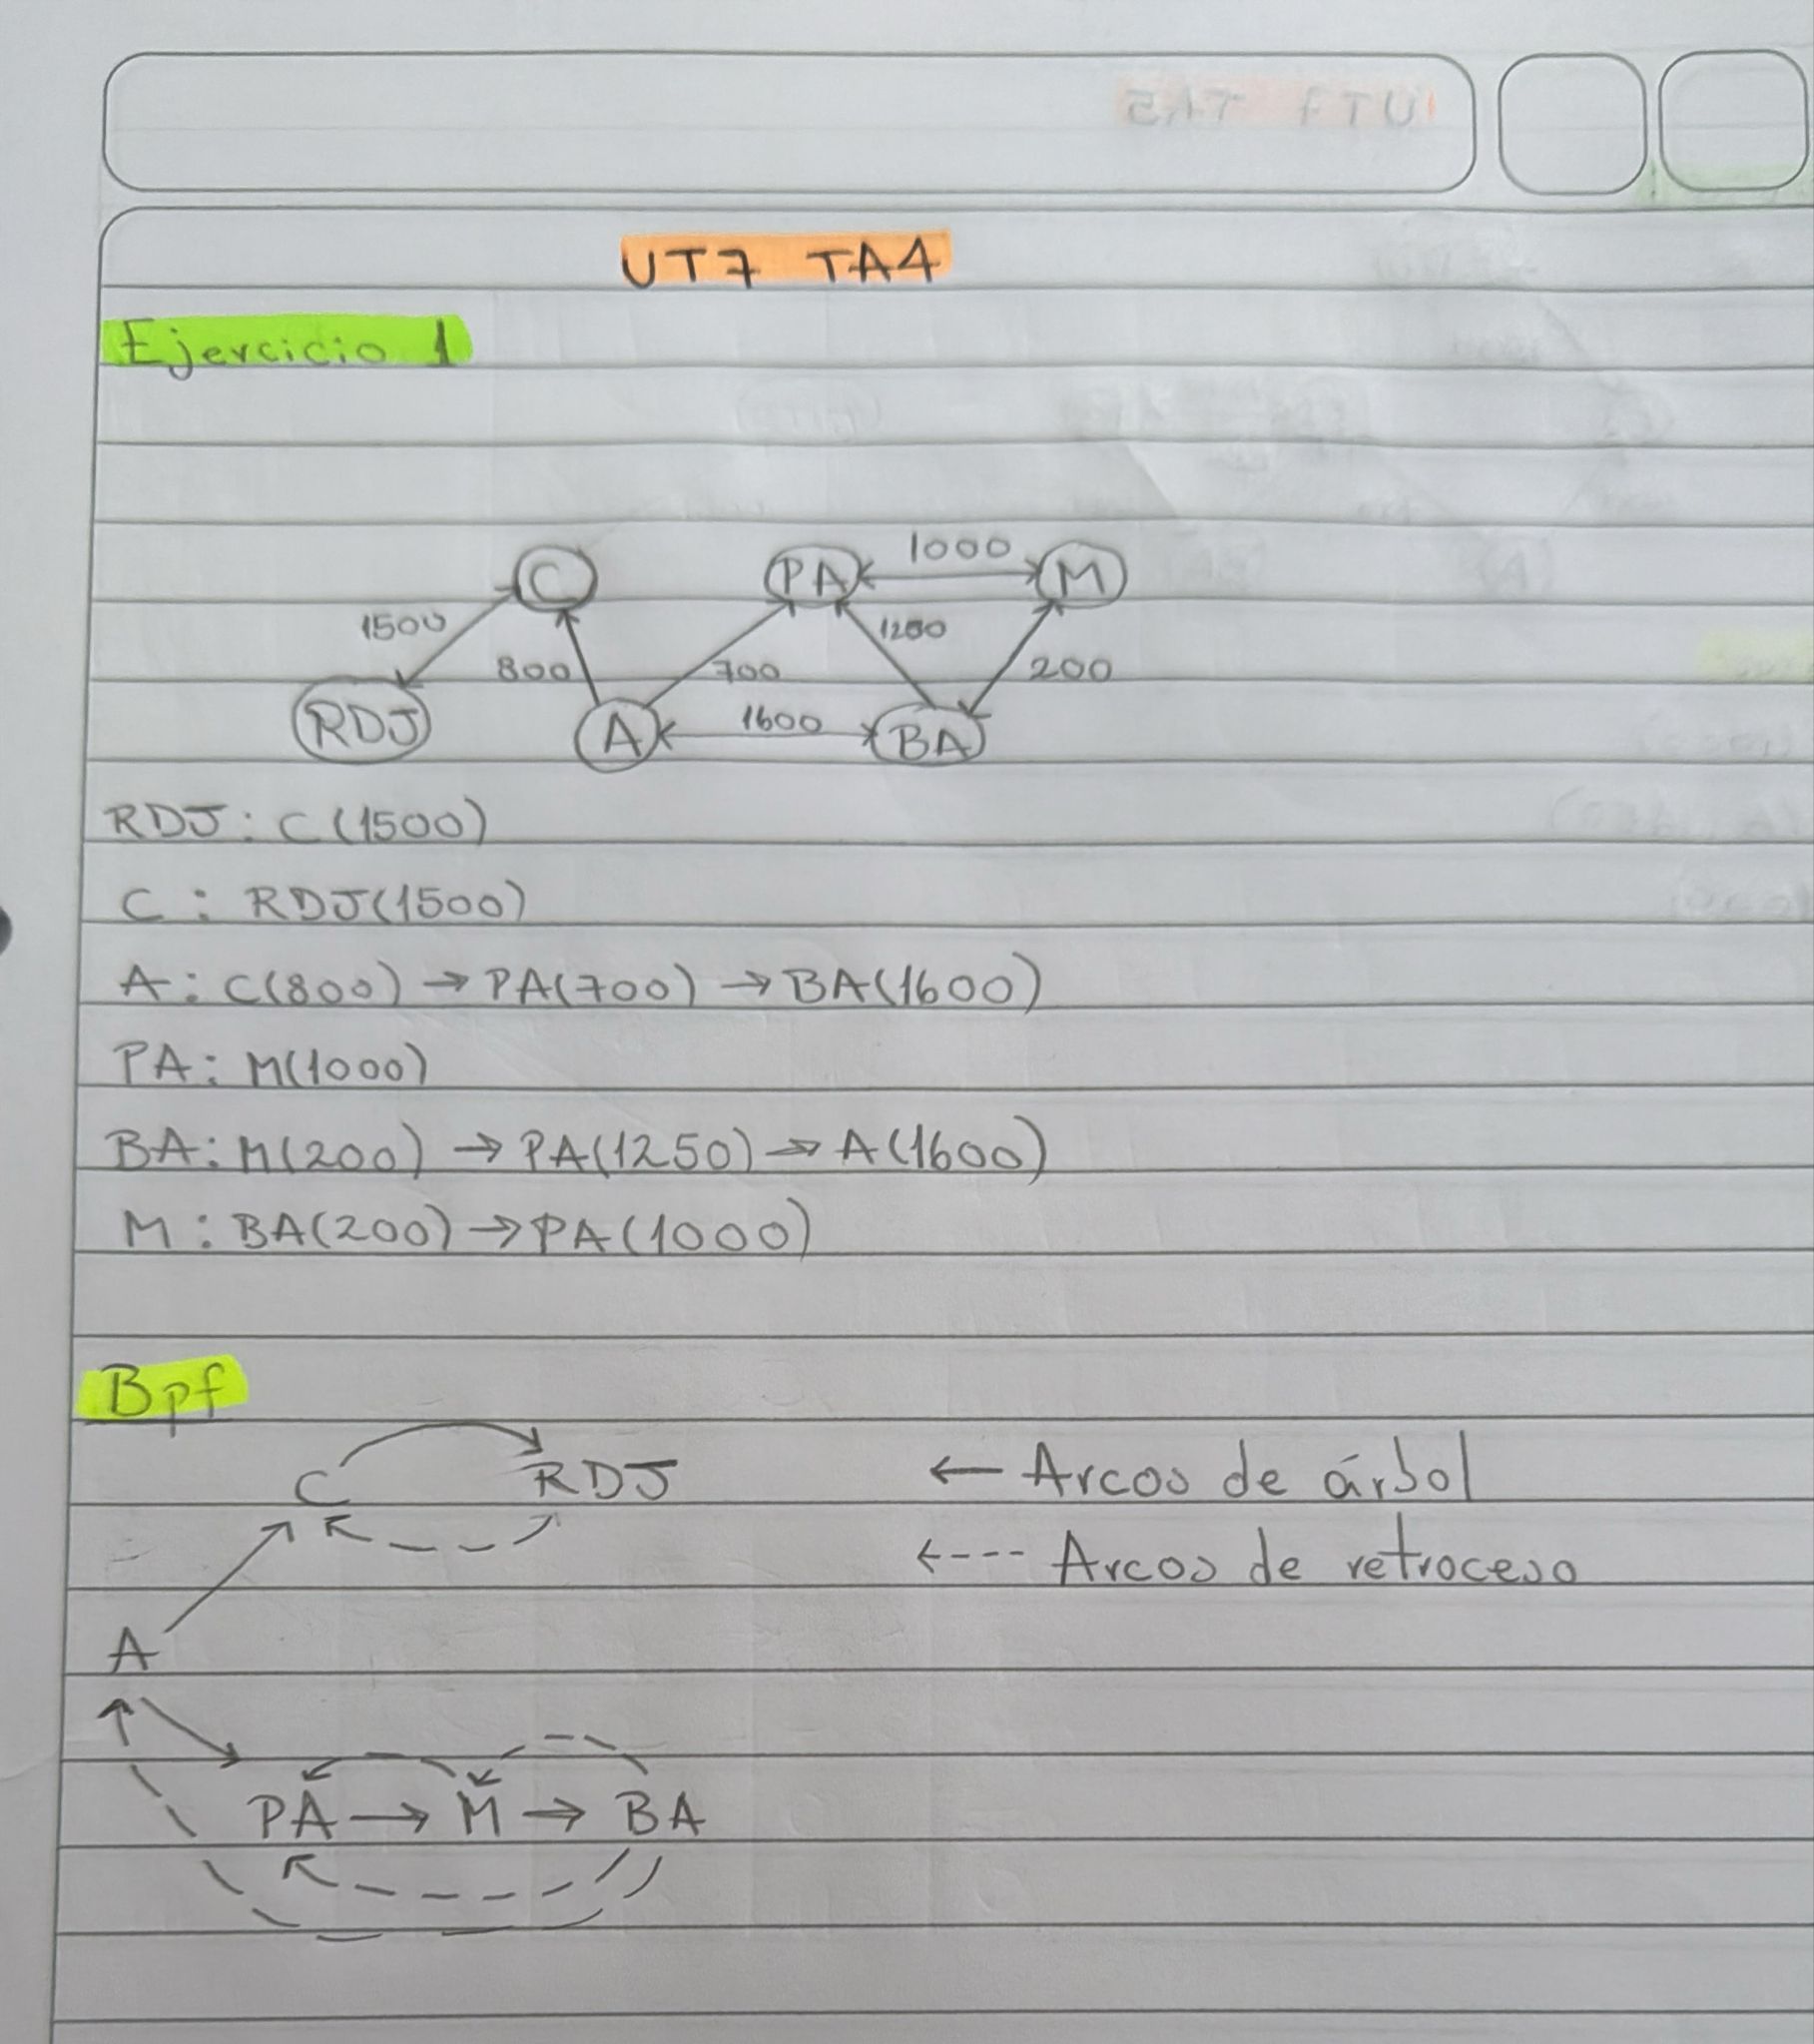 UT7 TA5
UT7 TA4
Ejercicio 1
C PA 1000 M
1500 800 700 1250 200
RDJ A 1600 BA
RDJ: C(1500)
C: RDJ(1500)
A: C(800) → PA(700) → BA(1600)
PA: M(1000)
BA: M(200) → PA(1250) → A(1600)
M: BA(200) → PA(1000)
Bpf
C RDJ ← Arcos de árbol
←--- Arcos de retroceso
A
PA → M → BA